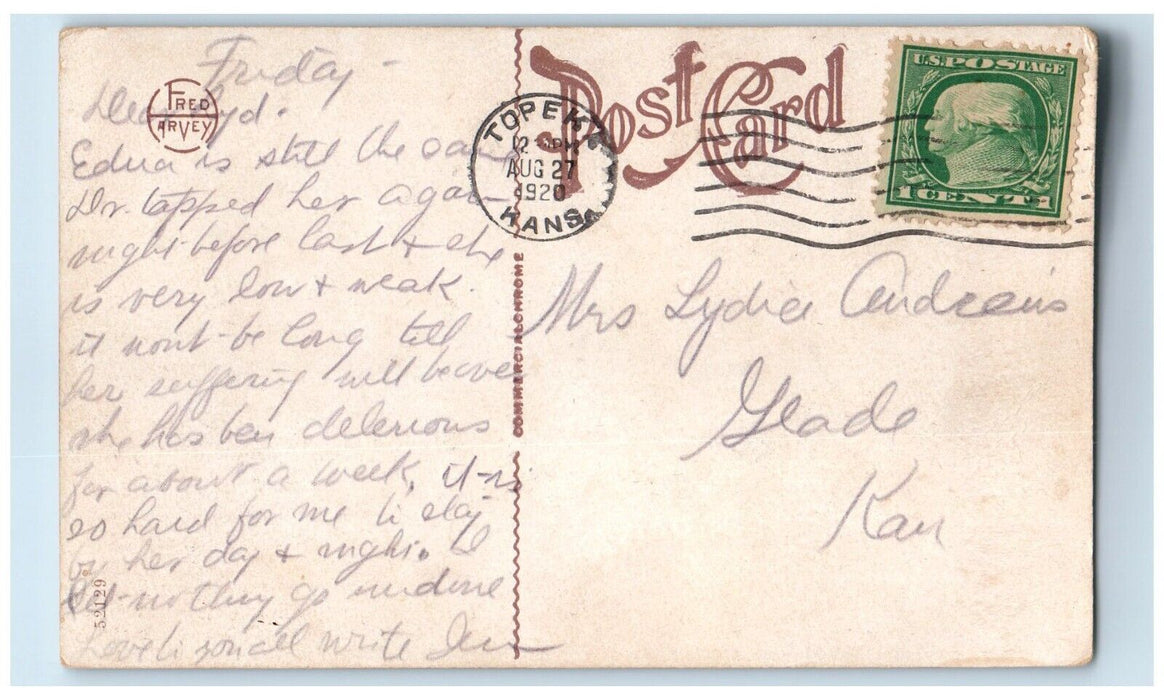 Friday -
Dear Lyd.
Edna is still the same
Dr. tapped her again
night before last & she
is very low & weak.
it wont be long till
her suffering will be over
she has ben delerious
for about a week, it is
so hard for me to stay
by her day & night. I
let nothing go undone
Love to you all write
FRED HARVEY
52129
COMMERCIALCHROME
Post Card
TOPEKA
12 PM
AUG 27
1920
KANS.
U.S. POSTAGE
1 CENT 1
Mrs Lydia Andrews
Glade
Kan